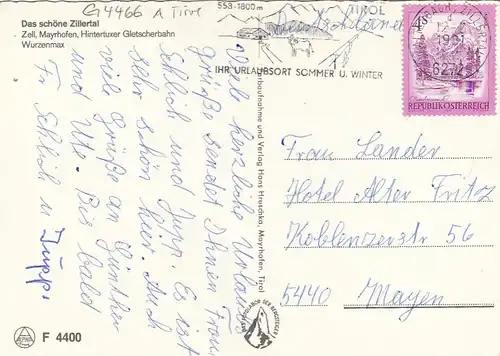 G4466 A Tirol
Das schöne Zillertal
Zell, Mayrhofen, Hintertuxer Gletscherbahn
Wurzenmax
553-1800 m
TIROL
IHR URLAUBSORT SOMMER U. WINTER
6272
REPUBLIK ÖSTERREICH
Viele herzliche Urlaubs
grüße sendet Ihnen Frau
Ehlich und Jupp. Es ist
sehr schön hier. Auch
viele Grüße an Günther
und Ute. Bis bald
F. Ehlich u. Jupp.
und Verlag Hans Hruschka, Mayrhofen, Tirol
Frau Lander
Hotel Alter Fritz
Koblenzerstr 56
5440 Mayen
F 4400